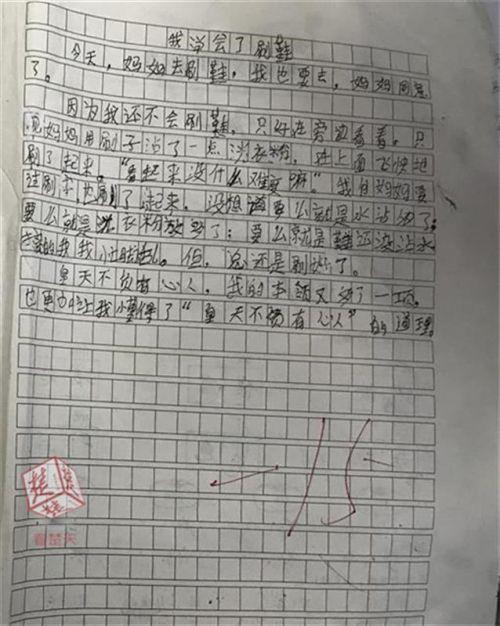 我学会了刷鞋
今天,妈妈去刷鞋,我也要去,妈妈同意
了。
因为我还不会刷鞋,只好在旁边看看。只
见妈妈用刷子沾了一点洗衣粉,在上面飞快地
刷了起来。“看起来没什么难度嘛。”我向妈妈要
过刷子,也刷了起来。没想道要么就是水沾多了;
要么就是洗衣粉放多了;要么就是鞋还没沾水
我手忙脚乱。但,总还是刷好了。
皇天不负有心人,我的本领又多了一项。
也更加让我懂得了“皇天不负有心人”的道理。
看楚天